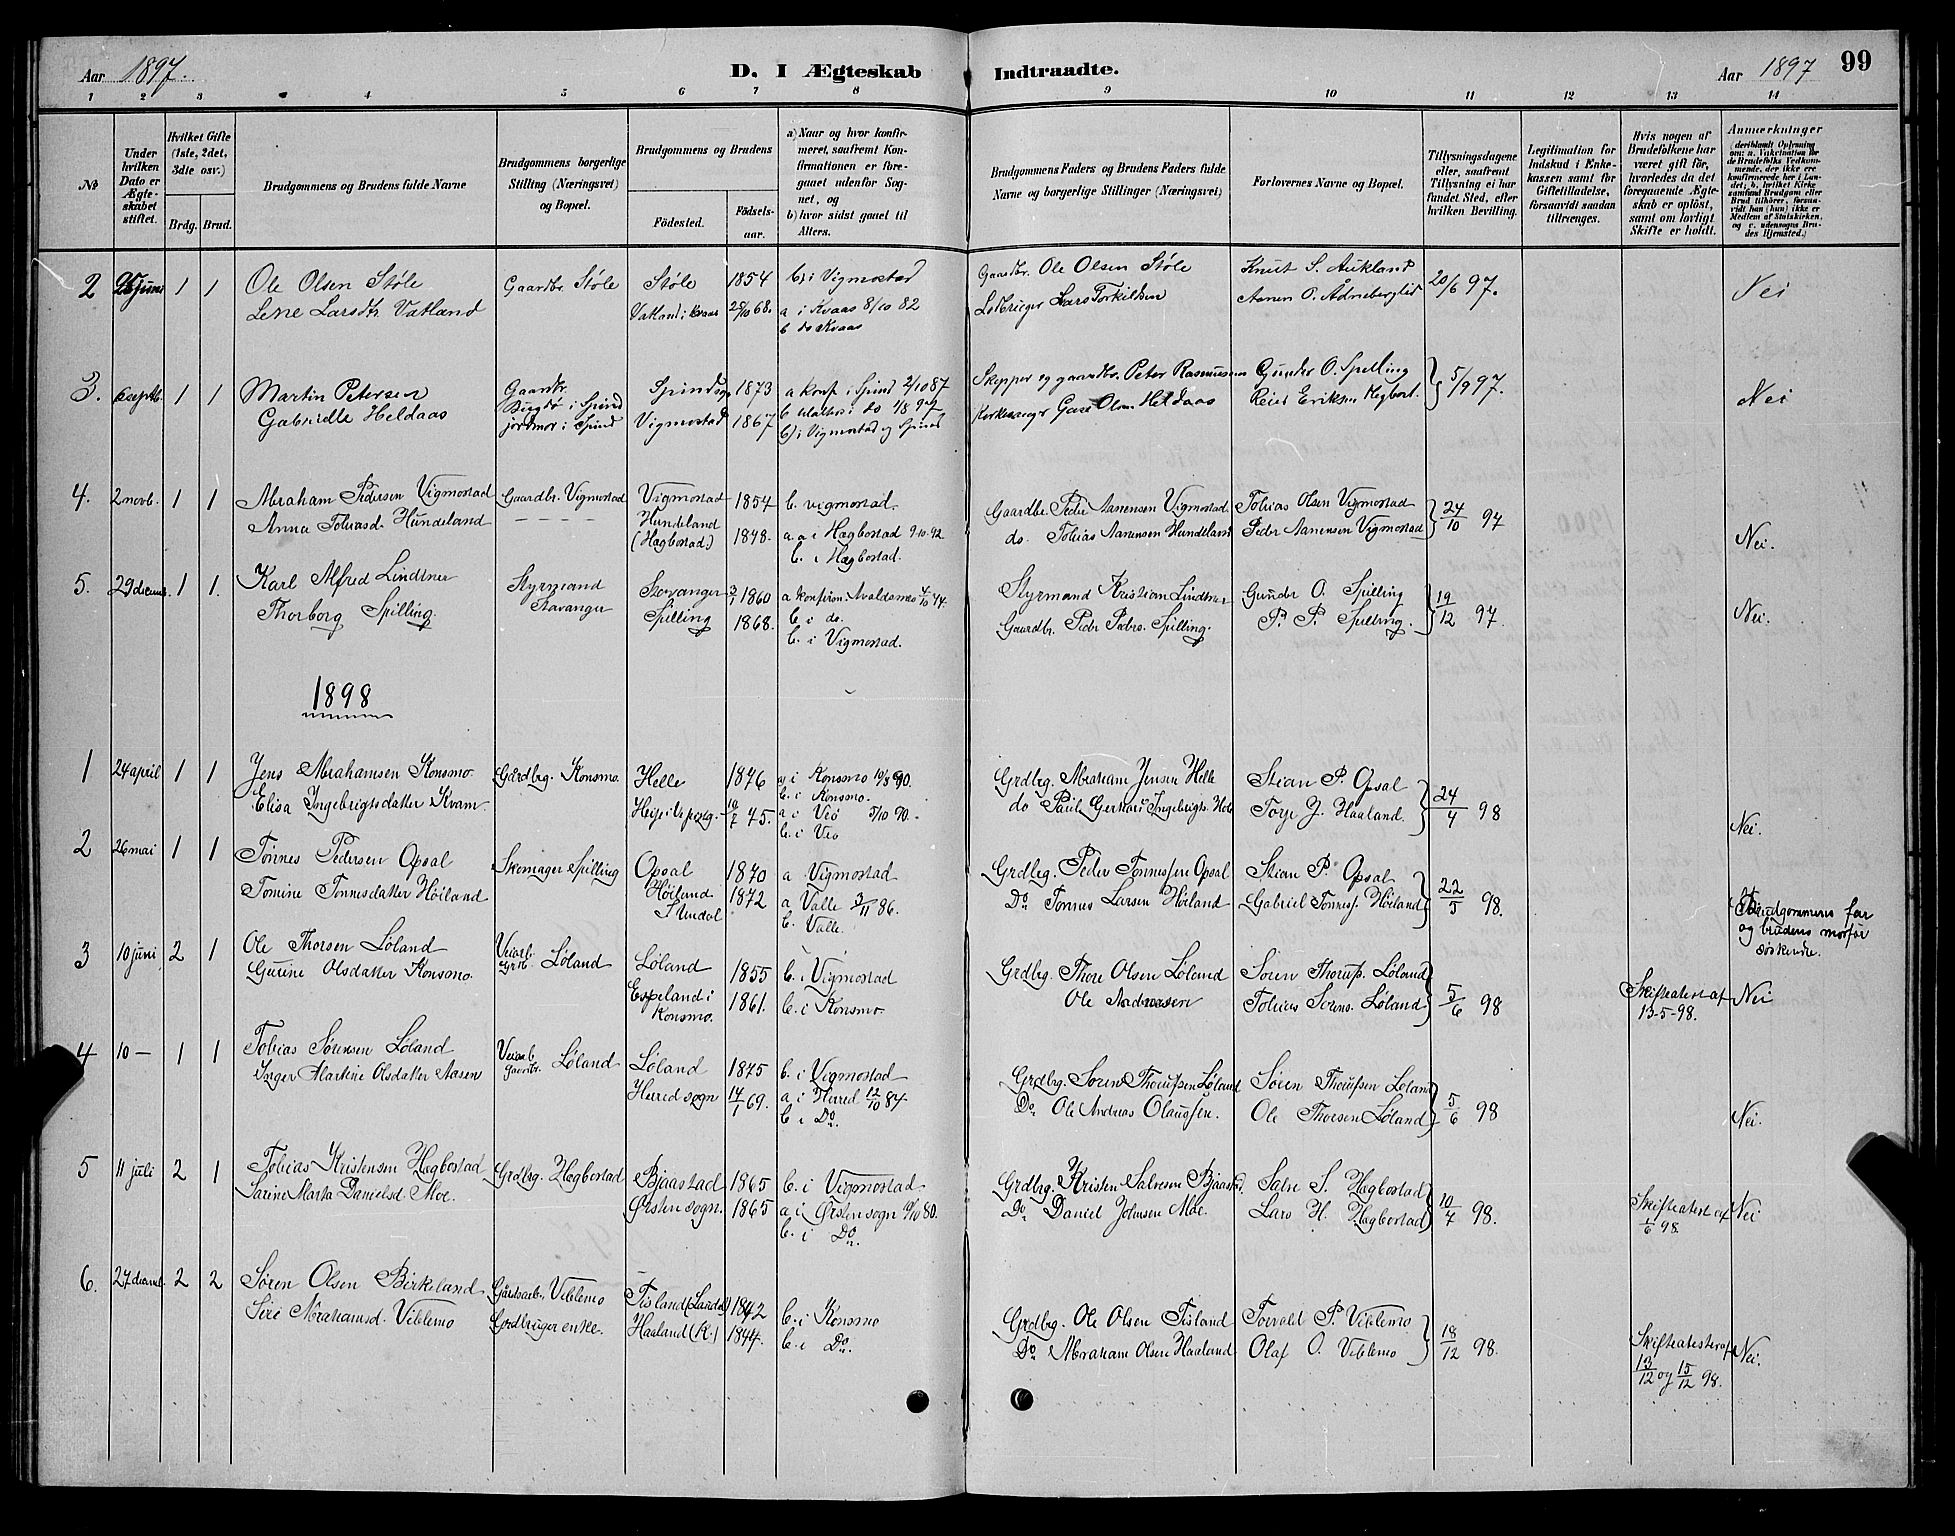 Aar 1897.
D. I Ægteskab Indtraadte.
Aar 1897 99
1 2 3 4 5 6 7 8 9 10 11 12 13 14
№
Under hvilken Dato er Ægteskabet stiftet.
Hvilket Gifte (1ste, 2det, 3die osv.)
Brdg. Brud.
Brudgommens og Brudens fulde Navne
Brudgommens borgerlige Stilling (Næringsvei) og Bopæl.
Brudgommens og Brudens
Fødested. Fødselsaar.
a) Naar og hvor konfirmeret, saafremt Konfirmationen er foregaaet udenfor Sognet, og
b) hvor sidst gaaet til Alters.
Brudgommens Faders og Brudens Faders fulde Navne og borgerlige Stillinger (Næringsvei)
Forlovernes Navne og Bopæl.
Tillysningsdagene eller, saafremt Tillysning ei har fundet Sted, efter hvilken Bevilling.
Legitimation for Indskud i Enkekassen samt for Giftetilladelse, forsaavidt saadan tiltrænges.
Hvis nogen af Brudefolkene har været gift før, hvorledes da det foregaaende Ægteskab er opløst, samt om lovligt Skifte er holdt.
Anmærkninger
2 25 juni 1 1 Ole Olsen Støle Gaardbr. Støle Støle 1854 b) i Vigmostad Gaardbr. Ole Olsen Støle Knut S. Aukland 20/6 97. Nei
Lene Larsdtr Vatland Vatland i Kvaas 25/10 68. a i Kvaas 8/10 82 Lars Torkildsen Aanen O. Ådneberglid
b do Kvaas
3. 6 septb. 1 1 Martin Petersen Gaardbr. Spind 1873 a konf. i Spind 2/10 87 Skipper og gaardbr. Peter Rasmussen Gunder O. Spilling 5/9 97. Nei
Gabrielle Heldaas jordmor i Spind Vigmostad 1867 b) i Vigmostad og Spind Olsen Heldaas Reier Eriksen
4. 2 novb. 1 1 Abraham Pedersen Vigmostad Gaardbr. Vigmostad Vigmostad 1854 b. Vigmostad. Gaardbr. Peder Aanensen Vigmostad Tobias Olsen Vigmostad 24/10 97 Nei.
Anna Tobiasd. Hundeland Hundeland (Hægbostad) 1848. a i Hægbostad b. i Hægbostad. do. Tobias Aanensen Hundeland Peder Aanensen Vigmostad
5. 29 decemb. 1 1. Karl Alfred Lindtner Styrmand Stavanger Stavanger 1860 a konfirm. Avaldsnes b. i do. Styrmand Kristian Lindtner Gunder O. Spilling 19/12 97. Nei.
Thorborg Spilling. Spilling 1868. b. i Vigmostad. Gaardbr. Peder Peders. Spilling. P. P. Spilling.
1898
1 24 april 1 1 Jens Abrahamsen Konsmo Gårdbrg. Konsmo. Helle 1876 a i Konsmo 19/8 90. b. i Konsmo. Grdbrg. Abraham Jensen Helle Stian P. Opsal 24/4 98 Nei.
Elisa Ingebrigtsdatter Kvam 75. a i Veø 5/10 90. b. i Veø do Paul Gerhard Ingebrigts. Torje J. Haaland.
2 26 mai 1 1 Tønnes Pedersen Opsal Skomager Spilling Opsal 1870 a Vigmostad Grdbrg. Peder Tønnessen Opsal Stian P. Opsal 22/5 98. Brudgommens far og brudens morfar søskende.
Tomine Tønnesdatter Høiland Høiland 1872 a Valle 3/11 86. b. Valle. Do Tønnes Larsen Høiland Gabriel Tønness. Høiland
3 10 juni 2 1 Ole Thorsen Løland Veiarb. Grb. Løland Løland 1855 b. i Vigmostad Grdbrg. Thore Olsen Løland Søren Thorus. Løland 5/6 98 Skifteatest af 13-5-98. Nei
Gurine Olsdatter Konsmo Espeland i Konsmo. 1861. b. i Konsmo Ole Andreasen Tobias Sørens. Løland
4 10 — 1 1 Tobias Sørensen Løland Veiarb. Løland Løland 1875 b. i Vigmostad Grdbrg. Søren Thorussen Løland Søren Thorussen Løland 5/6 98 Nei.
Inger Martine Olsdatter Aasen Herred sogn 14/1 69. a i Herred 12/10 84. b. i Do. Do Ole Andreas Olaussen. Ole Thorsen Løland
5 11 juli 2 1 Tobias Kristensen Hægbostad Grdbrg. Hægbostad Bjaastad 1865 b. i Vigmostad Grdbrg. Kristen Salvesen Bjaastad Salve S. Hægbostad 10/7 98. Skifteatest af 1/6 98. Nei
Sarine Marta Danielsd. Moe. Ørsten sogn. 1865 a i Ørsten sogn 80. b. i Do. Do Daniel Johnsen Moe. Lars H. Hægbostad
6. 27 decemb. 2 2 Søren Olsen Birkeland Gårdsarb. Viblemo Tisland 1842 b. i Konsmo Grdbrg. Ole Olsen Tisland Torvald P. Viblemo 18/12 98. Skifteatester af 13/12 og 15/12 98. Nei.
Siri Abrahamsd. Viblemo Gårdbruger enke. Haaland (K.) 1844. b. i Do. Do Abraham Olsen Haaland Olaf O. Viblemo